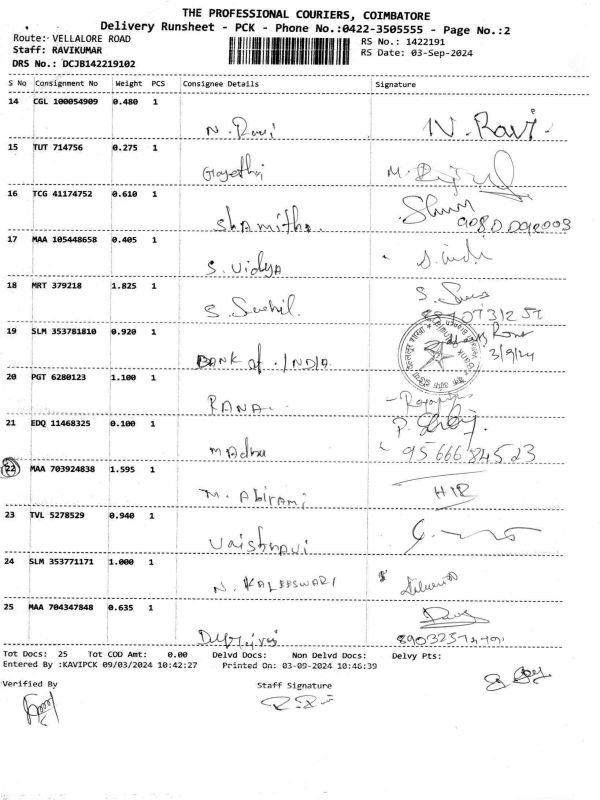 THE PROFESSIONAL COURIERS, COIMBATORE
Delivery Runsheet - PCK - Phone No.:0422-3505555 - Page No.:2
Route: VELLALORE ROAD
RS No.: 1422191
Staff: RAVIKUMAR
RS Date: 03-Sep-2024
DRS No.: DCJB142219102
S No Consignment No Weight PCS Consignee Details Signature
14 CGL 100054909 0.480 1
N. Ravi N. Ravi.
15 TUT 714756 0.275 1
Gayethri
16 TCG 41174752 0.610 1
Shamitha.
17 MAA 105448658 0.405 1
S. Vidya
18 MRT 379218 1.825 1
S. Sushil.
19 SLM 353781810 0.920 1
BANK of INDIA. 3/9/24
20 PGT 6280123 1.100 1
RANA
21 EDQ 11468325 0.100 1
Madhu 9566684523
22 MAA 703924838 1.595 1
M. Abirami
23 TVL 5278529 0.940 1
Vaishnavi
24 SLM 353771171 1.000 1
N. KALEESWARI
25 MAA 704347848 0.635 1
Tot Docs: 25 Tot COD Amt: 0.00 Delvd Docs: Non Delvd Docs: Delvy Pts:
Entered By :KAVIPCK 09/03/2024 10:42:27 Printed On: 03-09-2024 10:46:39
Verified By Staff Signature